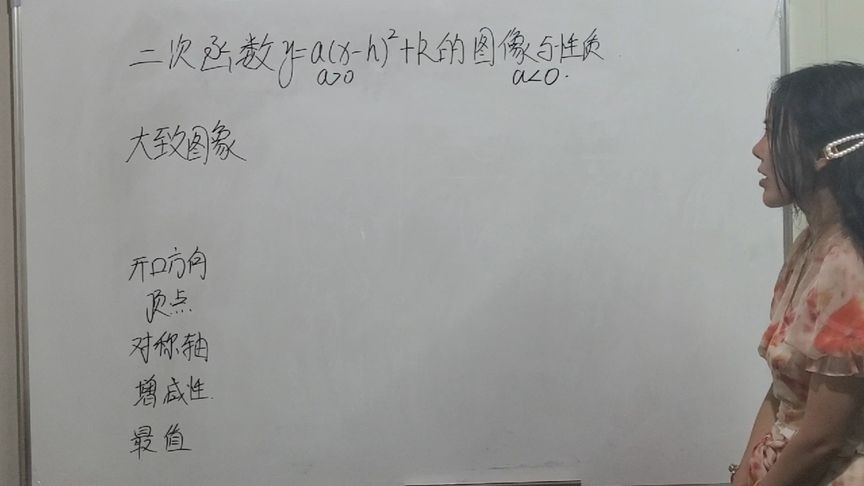 二次函数y=a(x-h)²+k的图像与性质
a>0 a<0.
大致图象
开口方向
顶点
对称轴
增减性.
最值